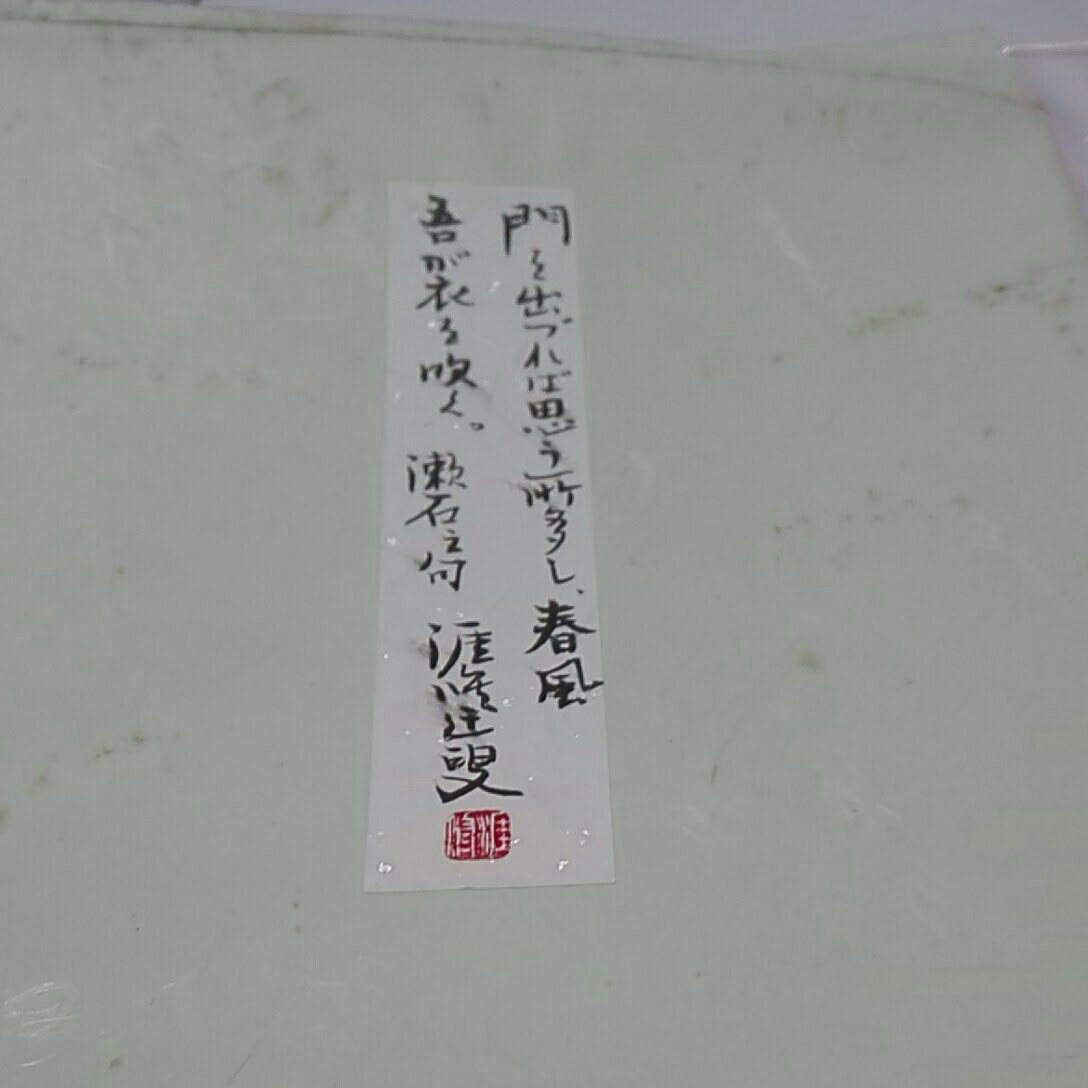 門を出づれば思う所多し、春風
吾が衣を吹く。 漱石之句